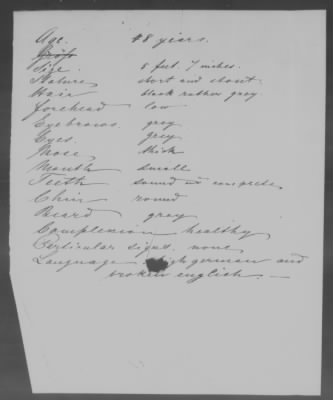 Age. 48 years.
Size 5 feet 7 inches.
Stature, short and stout.
Hair black rather grey.
forehead low
Eyebrows. grey
Eyes. grey
Nose, thick
Mouth small
Teeth sound and complete,
Chin round
Beard grey
Complexion healthy,
Particular signs. none,
Language german and
broken english. —